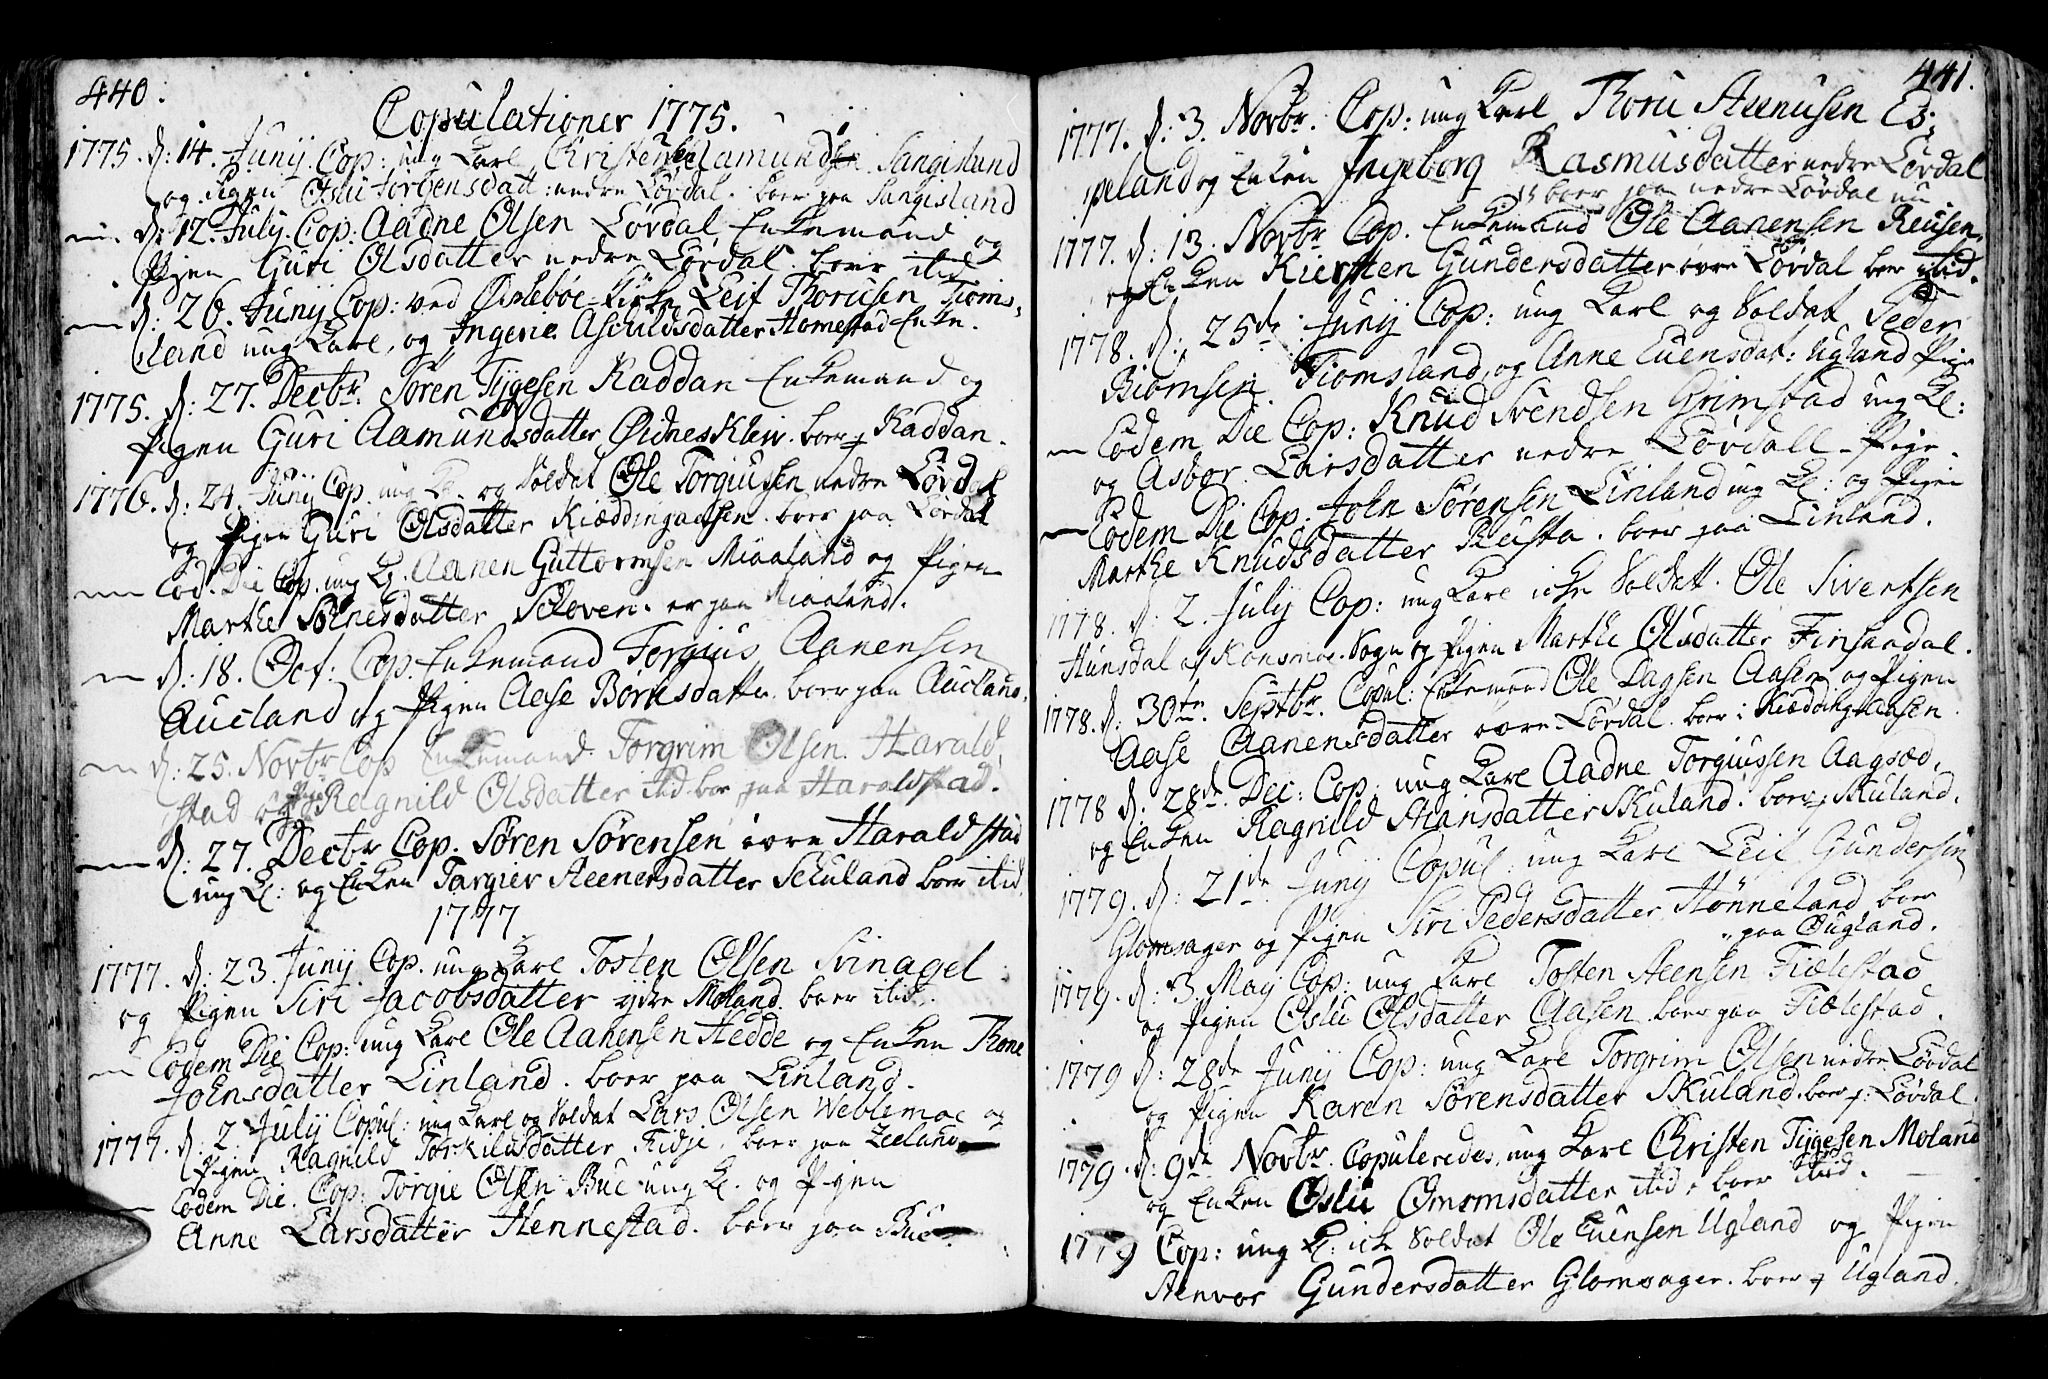 440.
Copulationer 1775.
1775. d: 14. Junij. Cop: ung Karl Christen Aamundsen Sangisland
og Pigen Oslu Torgensdatt: nedre Lövdal. boer paa Sangisland
d: 12. July. Cop: Aadne Olsen Lövdal Enkemand og
Pigen Guri Olsdatter nedre Lövdal boer itid
d: 26. Junij Cop: ved Øislebøe Kirke Leif Thorusen Tioms-
land ung Karl, og Ingerie Aschildsdatter Homestad Enke.
1775. d: 27. Decbr. Sören Tÿgesen Raddan Enkemand og
Pigen Guri Aamundsdatter Øidnes Kleiv. boer p Raddan.
1776. d: 24. Junij Cop. ung K. og Soldat Ole Torgiusen nedre Lövdal
og Pigen Guri Olsdatter Kiæddingaasen. boer paa Lördal
Eod. Die Cop. ung K. Aanen Guttormsen Miaaland og Pigen
Marthe Sölnesdatter Scloven. er paa Miaaland.
d: 18. Oct: Cop. Enkemand Torgius Aanensen
Aucland og Pigen Aase Börrisdatter. boer paa Aucland.
d: 25. Novbr Cop Enkemand Torgrim Olsen Harald-
stad og Pige Ragnild Olsdatter itid boer paa Haraldstad.
d: 27. Decbr Cop. Sören Sörensen övre Haraldstad
ung K: og Enken Targier Aeenersdatter Sckuland boer itid.
1777
1777. d: 23. Junij Cop. ung Karl Tosten Olsen Svinagel
og Pigen Siri Jacobsdatter ydre Moland. boer itid.
Eodem Die Cop: ung Karl Ole Aanensen Hedde og Enken Thone
Johnsdatter Linland. boer paa Linland.
1777. d: 2. July Copul: ung Karl og Soldat Lars Olsen Weblemoe og
Pigen Ragnild Torkildsdatter Fidje. boer paa Leeland
Eodem Die. Cop: Torgie Olsen Bue ung K. og Pigen
Anne Larsdatter Hennestad. boer paa Bue
441.
1777. d: 3. Novbr. Cop: ung Karl Thoru Aeenusen Es-
peland og Enken Ingeborg Rasmusdatter nedre Lövdal
boer paa nedre Lövdal nu
1777. d: 13. Novbr Cop. Enkemand Ole Aanensen Reusen,
og Enken Kiersten Gundersdatter övre Lövdal boer itid.
1778. d: 25de Junij Cop: ung Karl og Soldat Peder
Biörnsen Tiomsland, og Anne Evensdat: Ugland Pige
Eodem Die Cop: Knud Svendsen Grimstad ung K:
og Asbor Larsdatter nedre Lövdall Pige.
Eodem Die Cop: John Sörensen Linland ung K: og Pigen
Marthe Knudsdatter Rusta. boer paa Linland.
1778. d: 2. July Cop: ung Karl icke Soldatt. Ole Sivertsen
Hunsdal af Konsmoe Sogn og Pigen Marthe Olsdatter Finsaadal.
1778. d: 30te Septbr. Copul: Enkemand Ole Dagsen Aasen og Pigen
Aase Aanensdatter övre Lövdal. boer i Kiæddingaasen.
1778 d: 28de Dec: Cop: ung Karl Aadne Torgiussen Aagsæd,
og Enken Ragnild Hansdatter Skuland. boer p Skuland.
1779. d: 21de Junij Copul: ung Karl Leif Gundersen
Glomsager og Pigen Siri Pedersdatter Hönneland boer
paa Øugland.
1779. d: 3 Maij Cop: ung Karl Tosten Aeensen Fiælestad
og Pigen Oslu Olsdatter Aasen boer paa Fiælestad.
1779 d: 28de Junij Cop: ung Karl Torgrim Olsen nedre Lövdal
og Pigen Karen Sörensdatter Skuland. boer p: Lövdal.
1779. d: 9de Novbr. Copuleredes ung Karl Christen Tÿgesen Moland
og Enken Oslu Omsmsdatter itid, boer itid.
1779 Cop: ung K: icke Soldat Ole Evensen Ugland og Pigen
Aenvor Gundersdatter Glomsager. boer p Ugland.